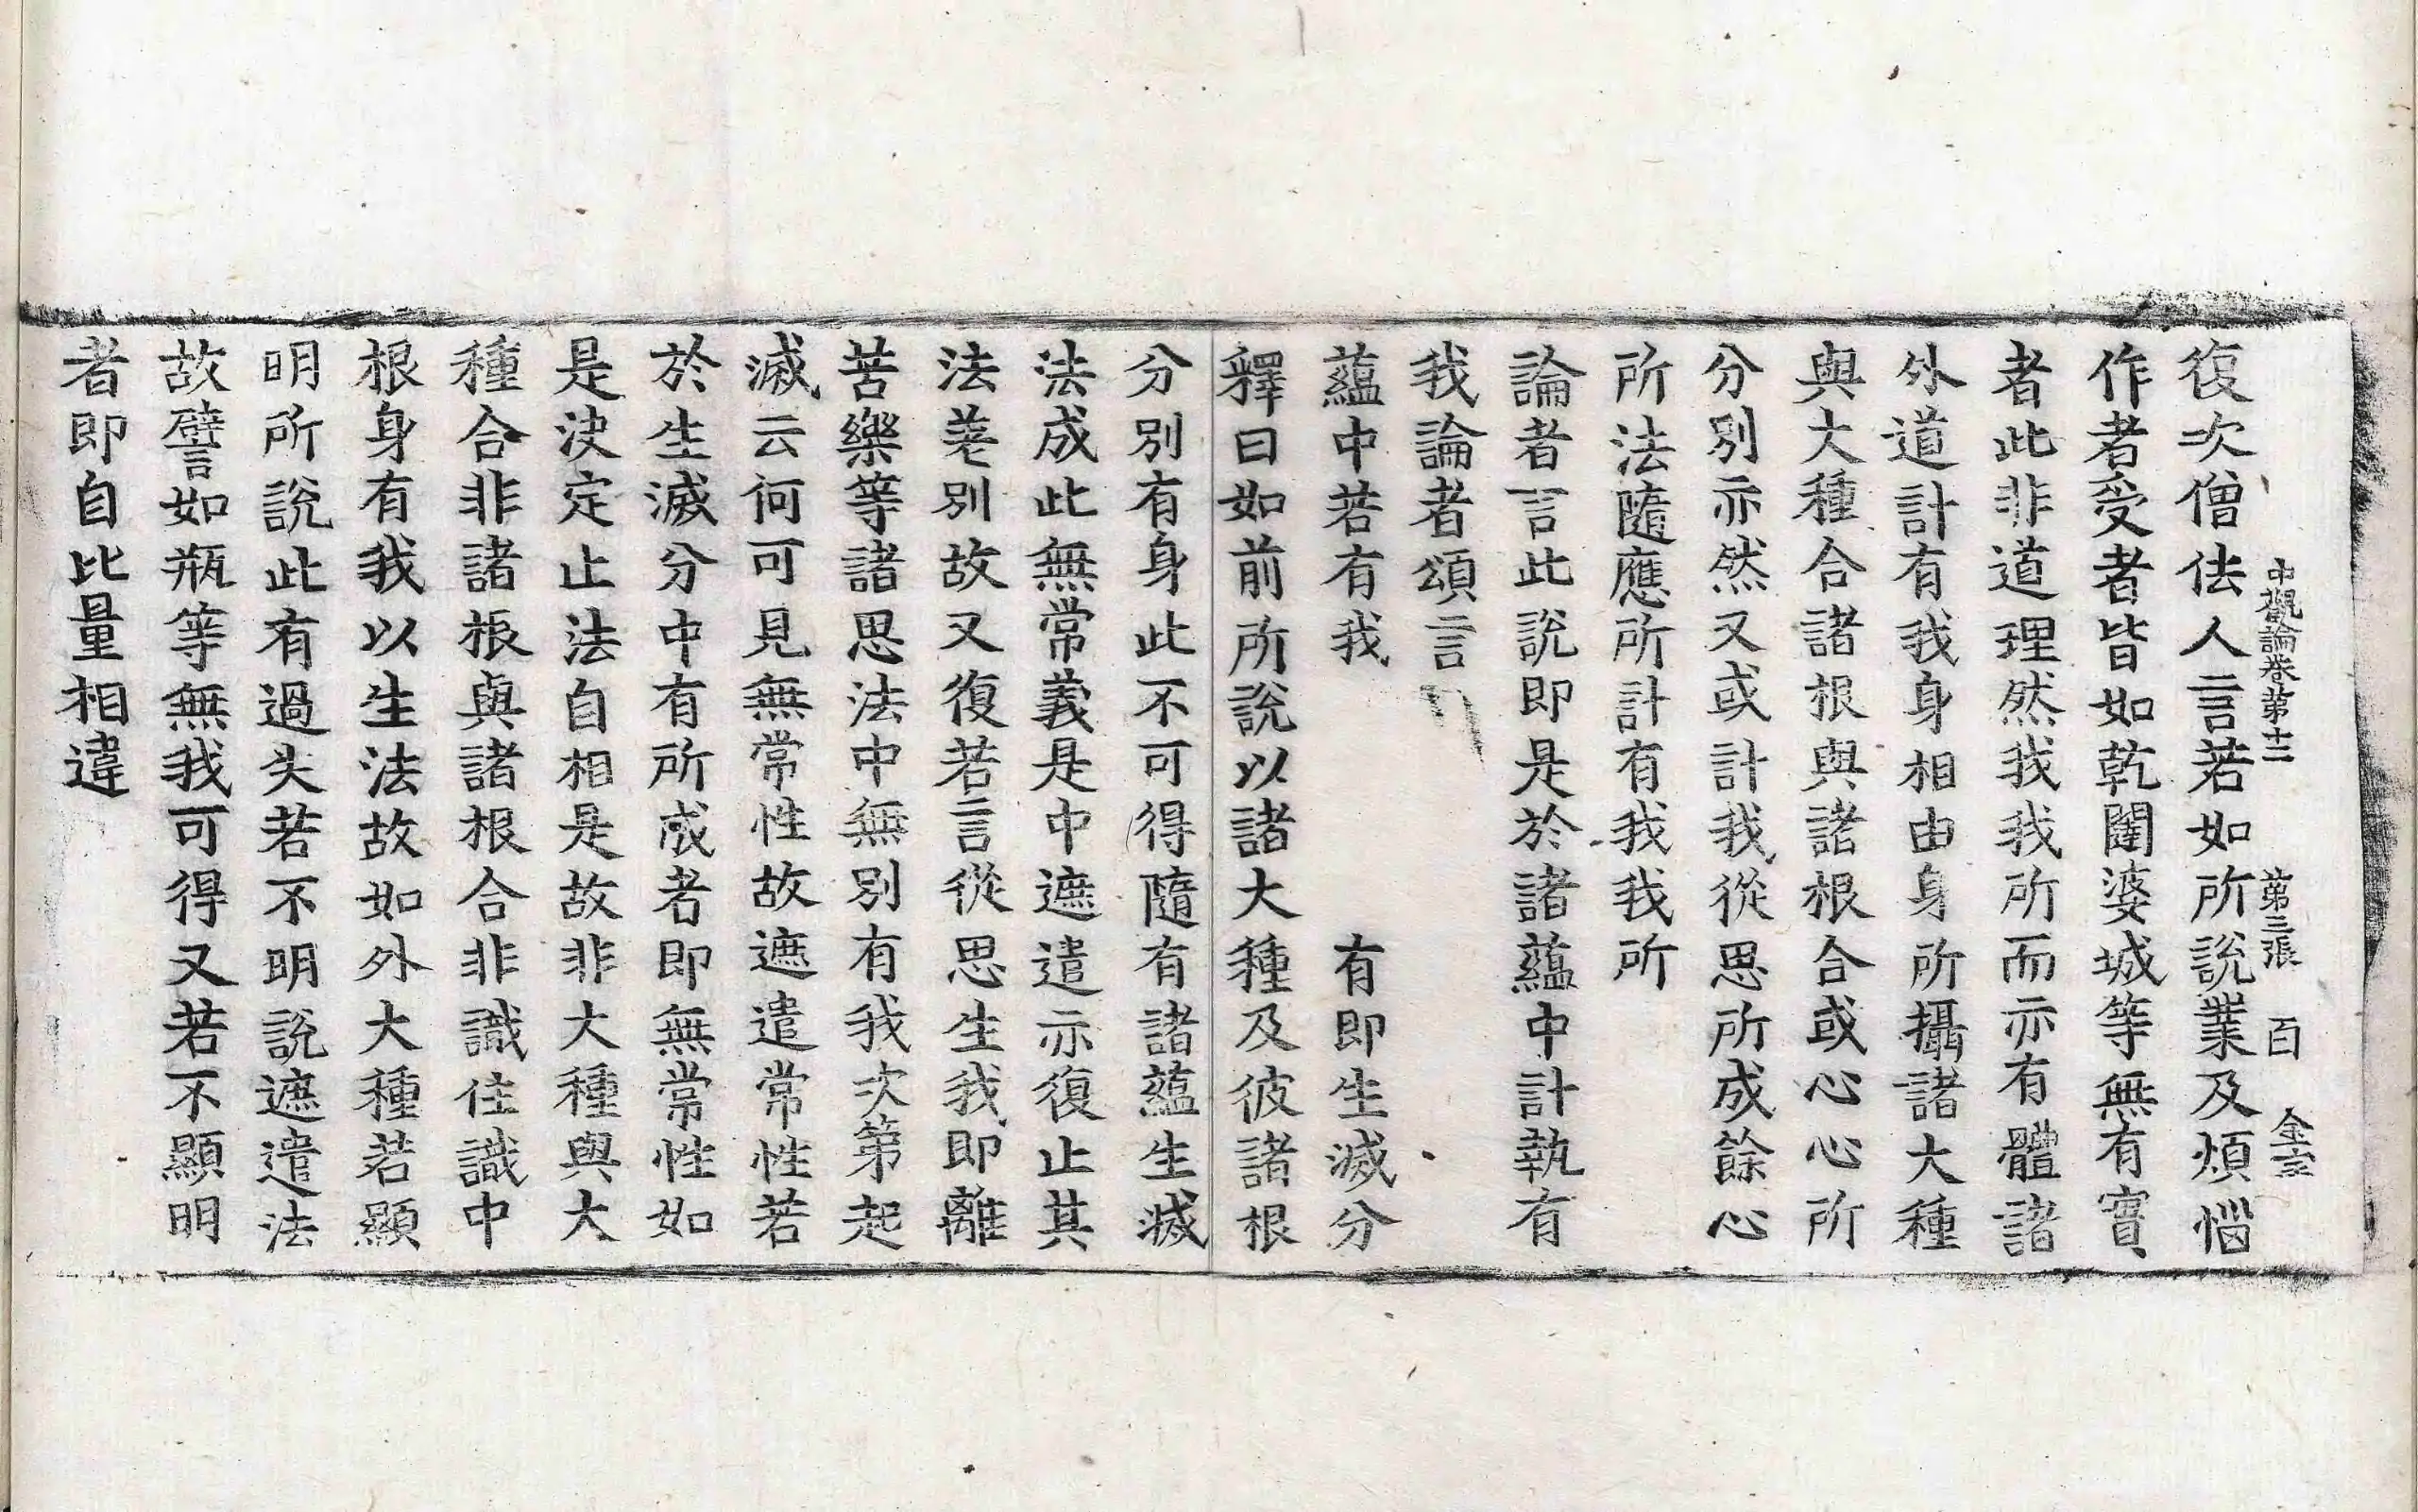 中觀論卷第十二 第三張 百
復次僧佉人言若如所說業及煩惱
作者受者皆如乾闥婆城等無有實
者此非道理然我我所而亦有體諸
外道計有我身相由身所攝諸大種
與大種合諸根與諸根合或心心所
分別亦然又或計我從思所成餘心
所法隨應所計有我我所
論者言此說即是於諸蘊中計執有
我論者頌言
蘊中若有我 有即生滅分
釋曰如前所說以諸大種及彼諸根
分別有身此不可得隨有諸蘊生滅
法成此無常義是中遮遣亦復止其
法差別故又復若言從思生我即離
苦樂等諸思法中無別有我次第起
滅云何可見無常性故遮遣常性若
於生滅分中有所成者即無常性如
是決定止法自相是故非大種與大
種合非諸根與諸根合非識住識中
根身有我以生法故如外大種若顯
明所說此有過失若不明說遮遣法
故譬如瓶等無我可得又若不顯明
者即自比量相違